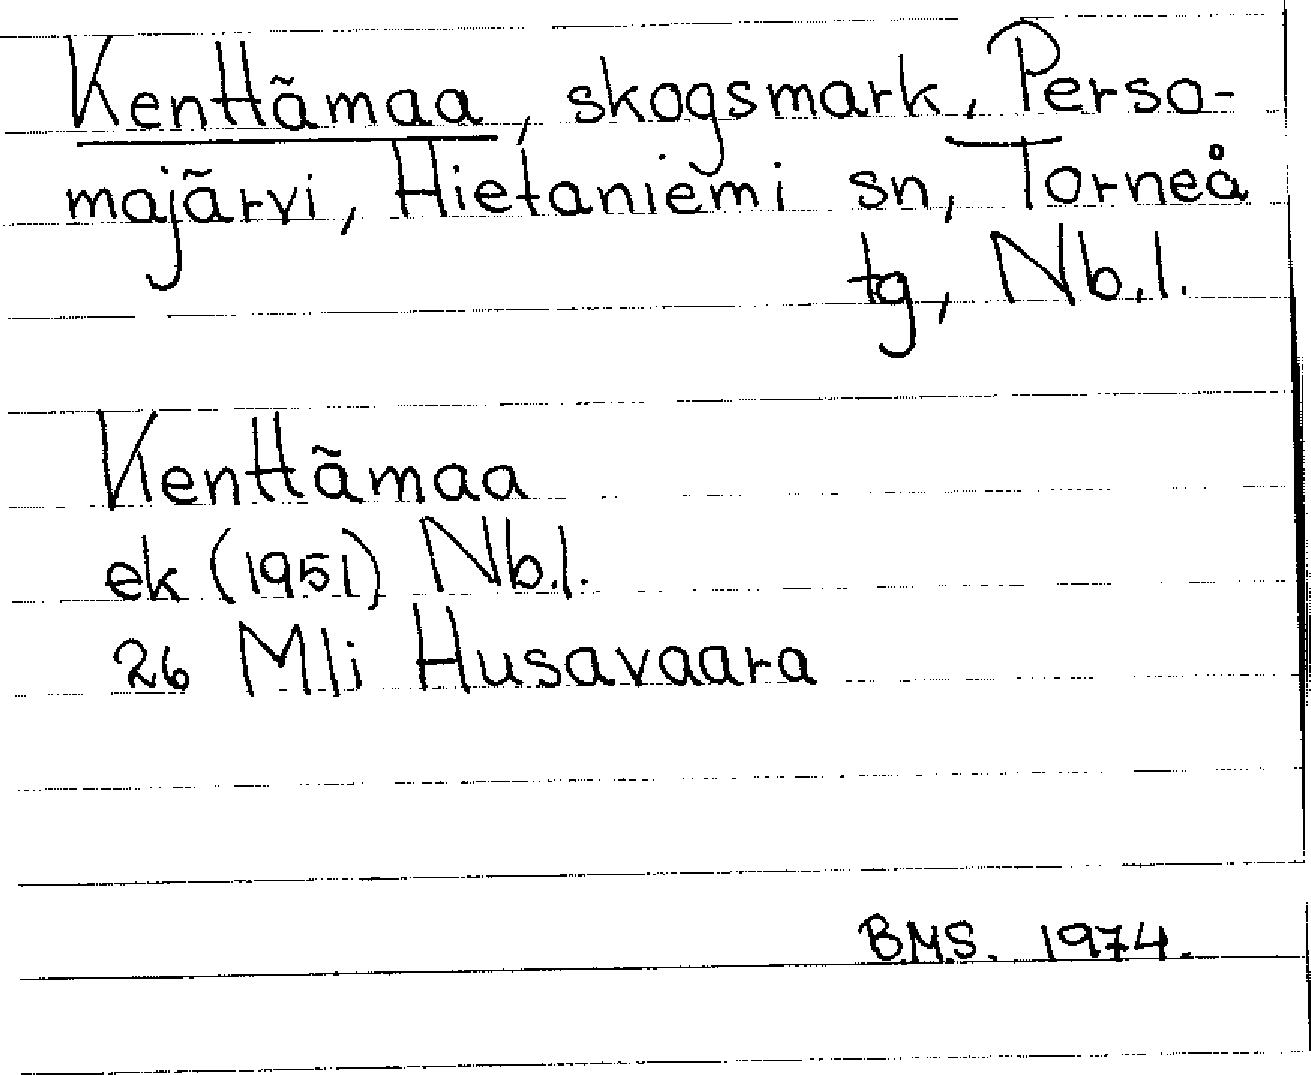 Kenttämaa, skogsmark, Perso-
majärvi, Hietaniemi sn, Torneå
tg, Nb.l.
Kenttämaa
ek (1951) Nb.l.
26 Mli Husavaara
BMS. 1974.